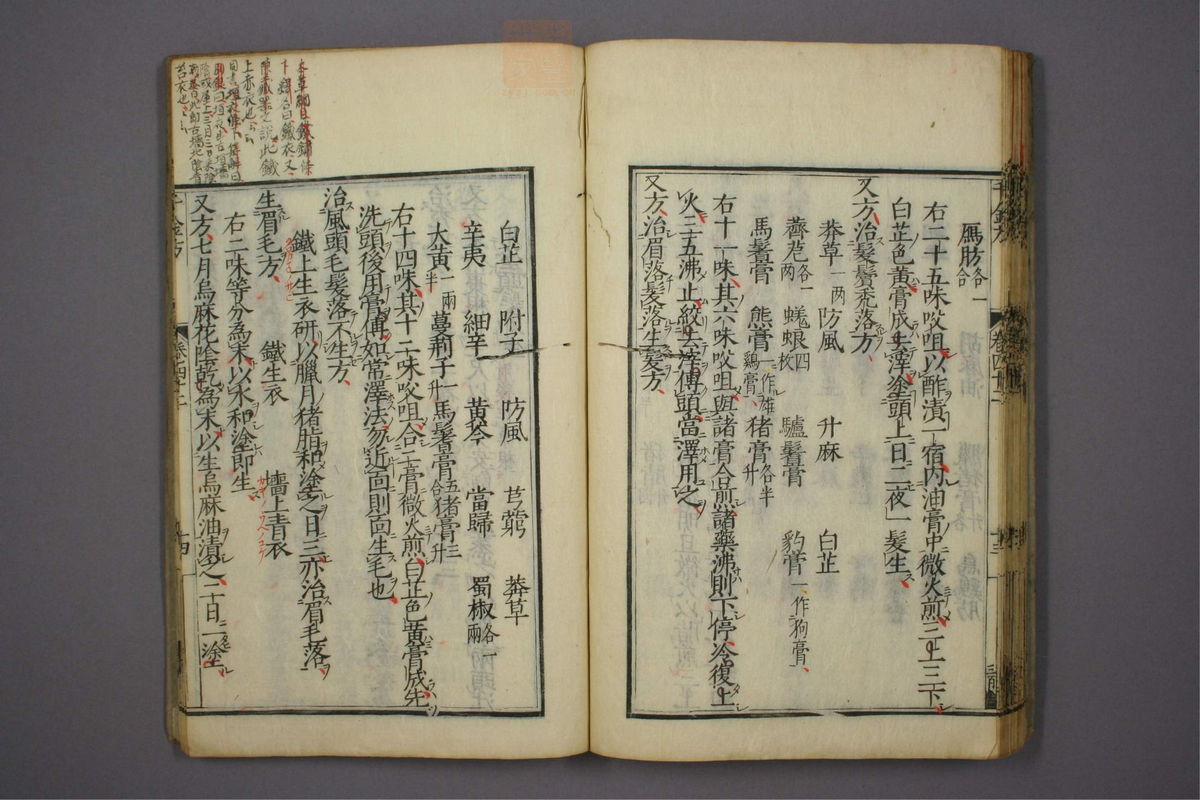 鴈肪各一合
右二十五味㕮咀以酢漬一宿內油膏中微火煎三上三下
白芷色黃膏成去滓塗頭上日二夜一髮生
又方治髮鬢禿落方
莽草一兩 防風 升麻 白芷
薺苨各一兩 蜣蜋四枚 驢鬐膏 豹膏一作狗膏
馬鬐膏 熊膏一作雄雞膏 猪膏各半升
右十一味其六味㕮咀與諸膏合煎諸藥沸則下停冷復上
火三五沸止絞去滓傅頭當澤用之
又方治眉落髮落生髮方
白芷 附子 防風 芎藭 莽草
辛夷 細辛 黃芩 當歸 蜀椒各一兩
大黃一兩半 蔓荊子一升 馬鬐膏五合 猪膏三升
右十四味其十二味㕮咀合二膏微火煎白芷色黃膏成先
洗頭後用膏傅如常澤法勿近面則面生毛也
治風頭毛髮落不生方
鐵上生衣研以臘月猪脂和塗之日三亦治眉毛落
生眉毛方
鐵生衣 墻上青衣
右二味等分為末以水和塗即生
又方七月烏麻花陰乾為末以生烏麻油漬之二日一塗
千金方 卷四十二 十三
千金方 卷四十二 十四